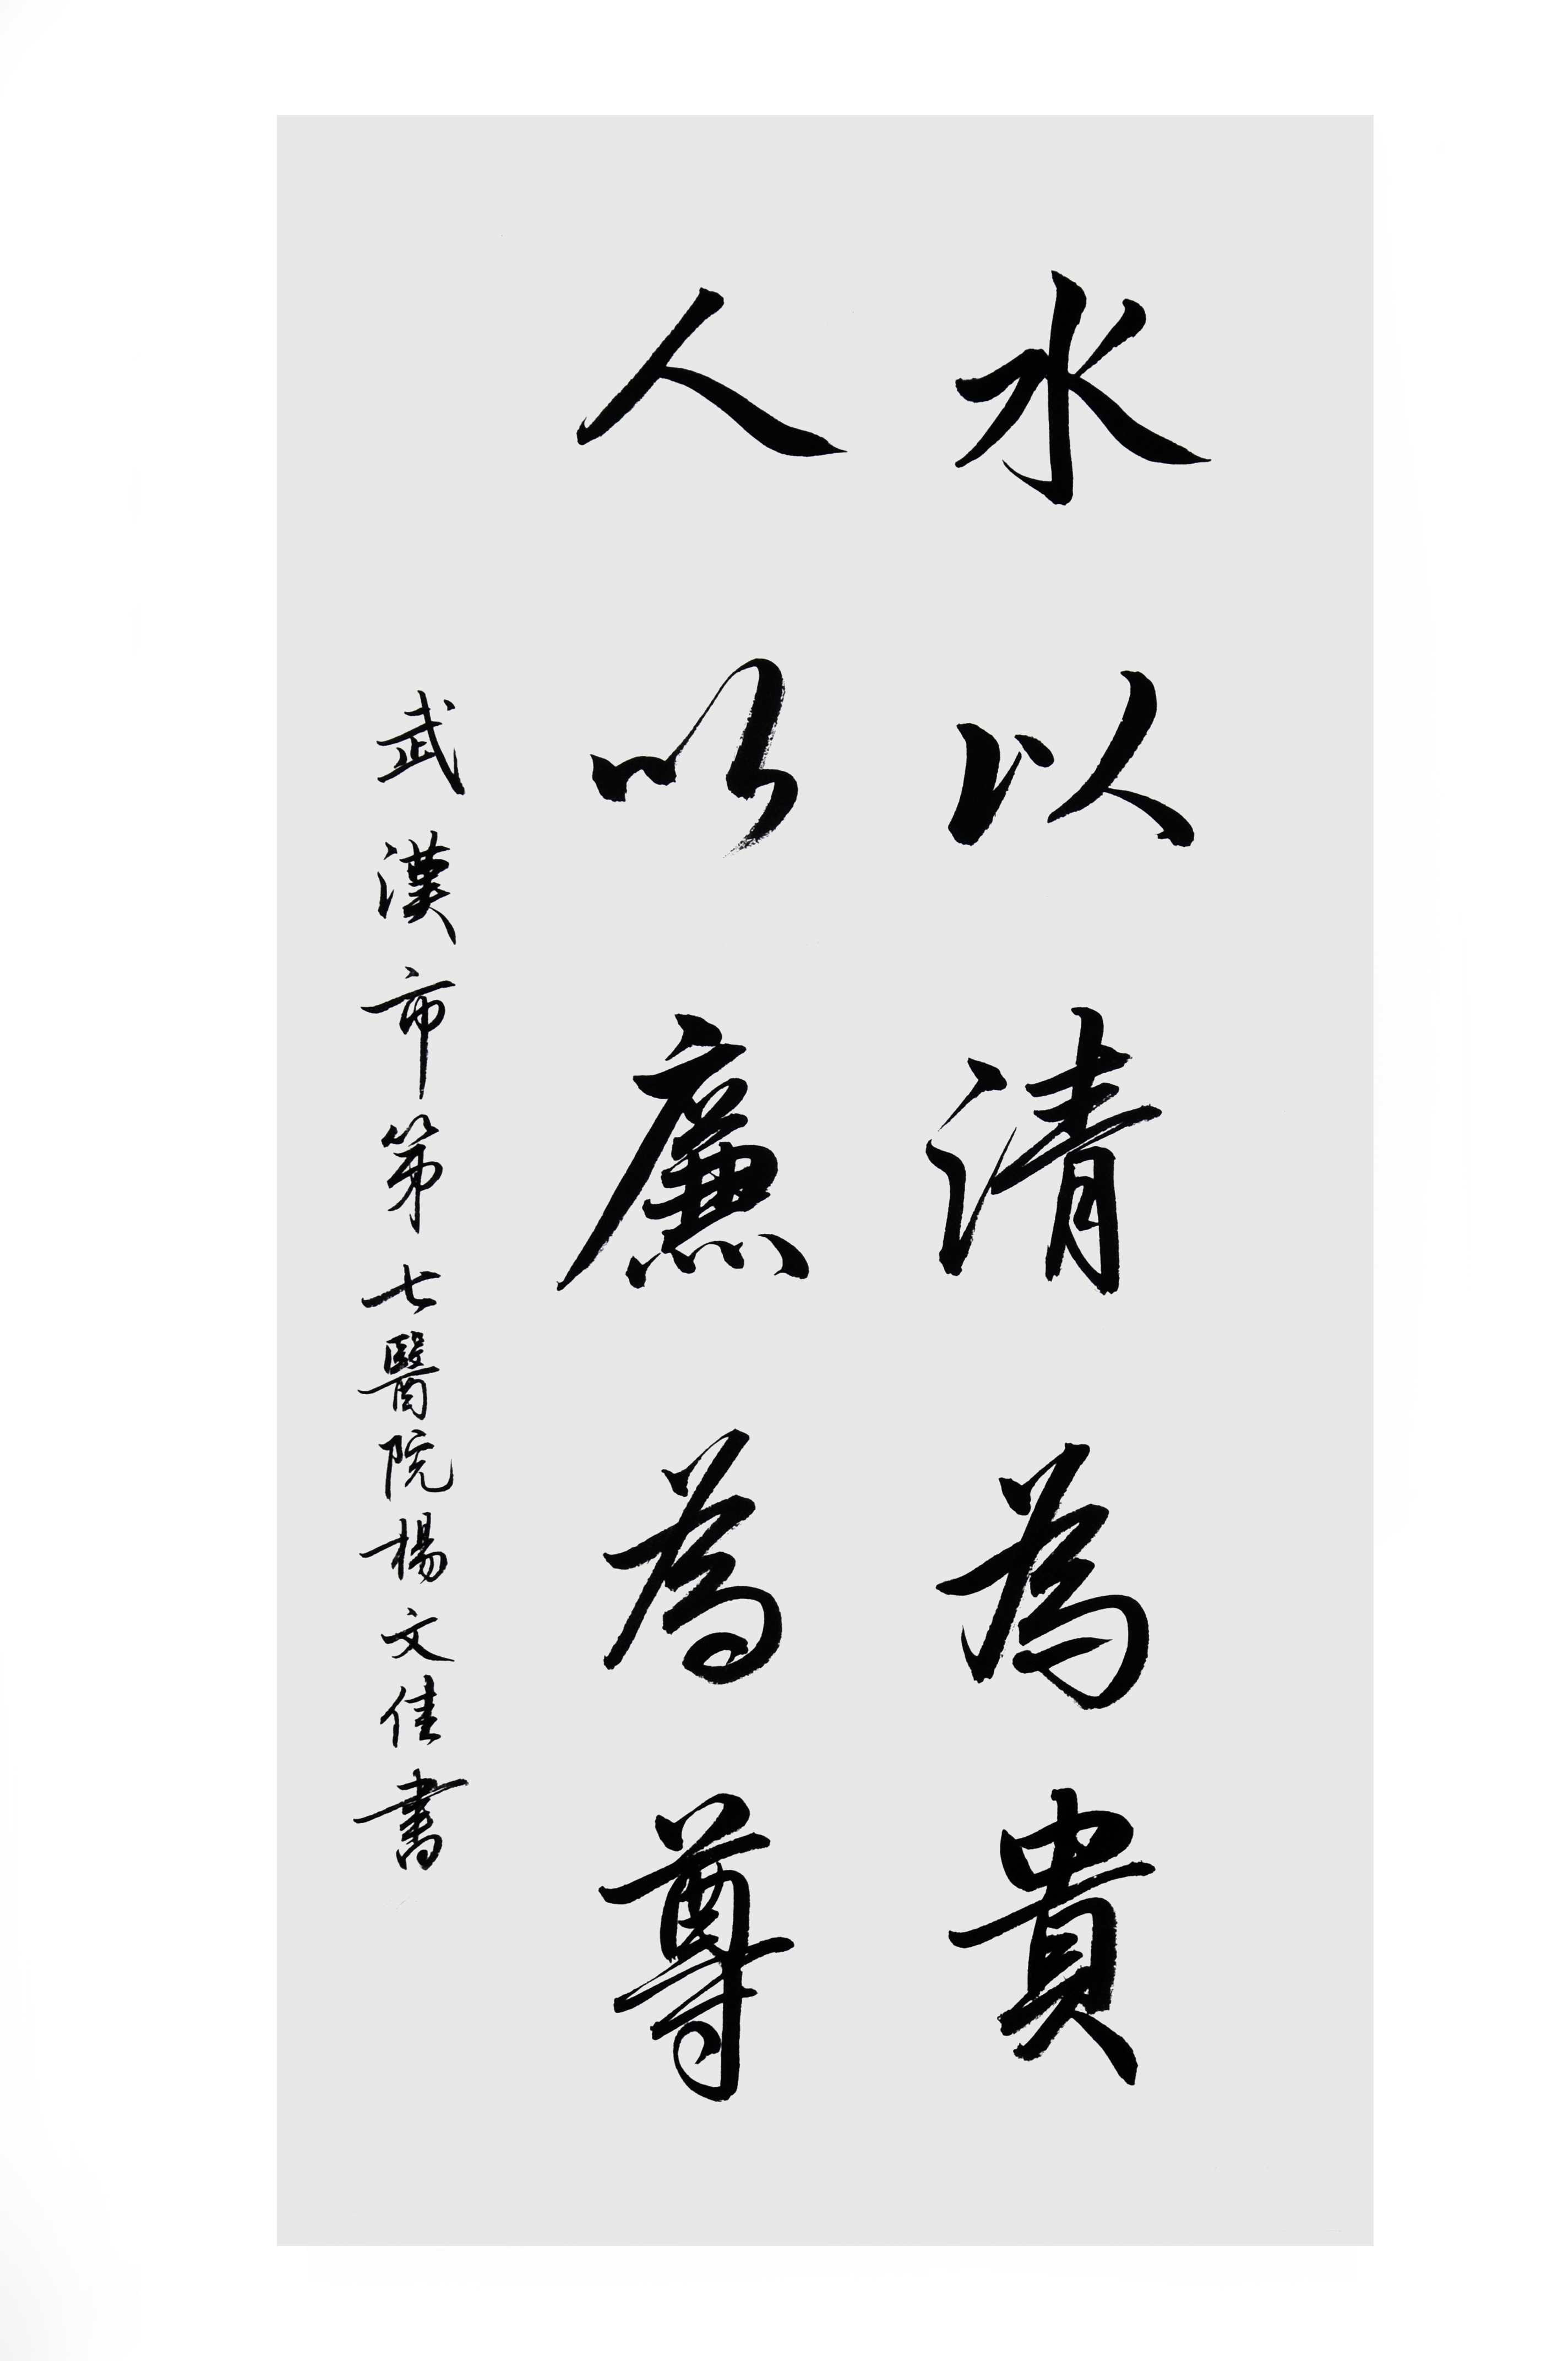 水以清為貴
人以廉為尊
武漢市第七醫院楊文佳書